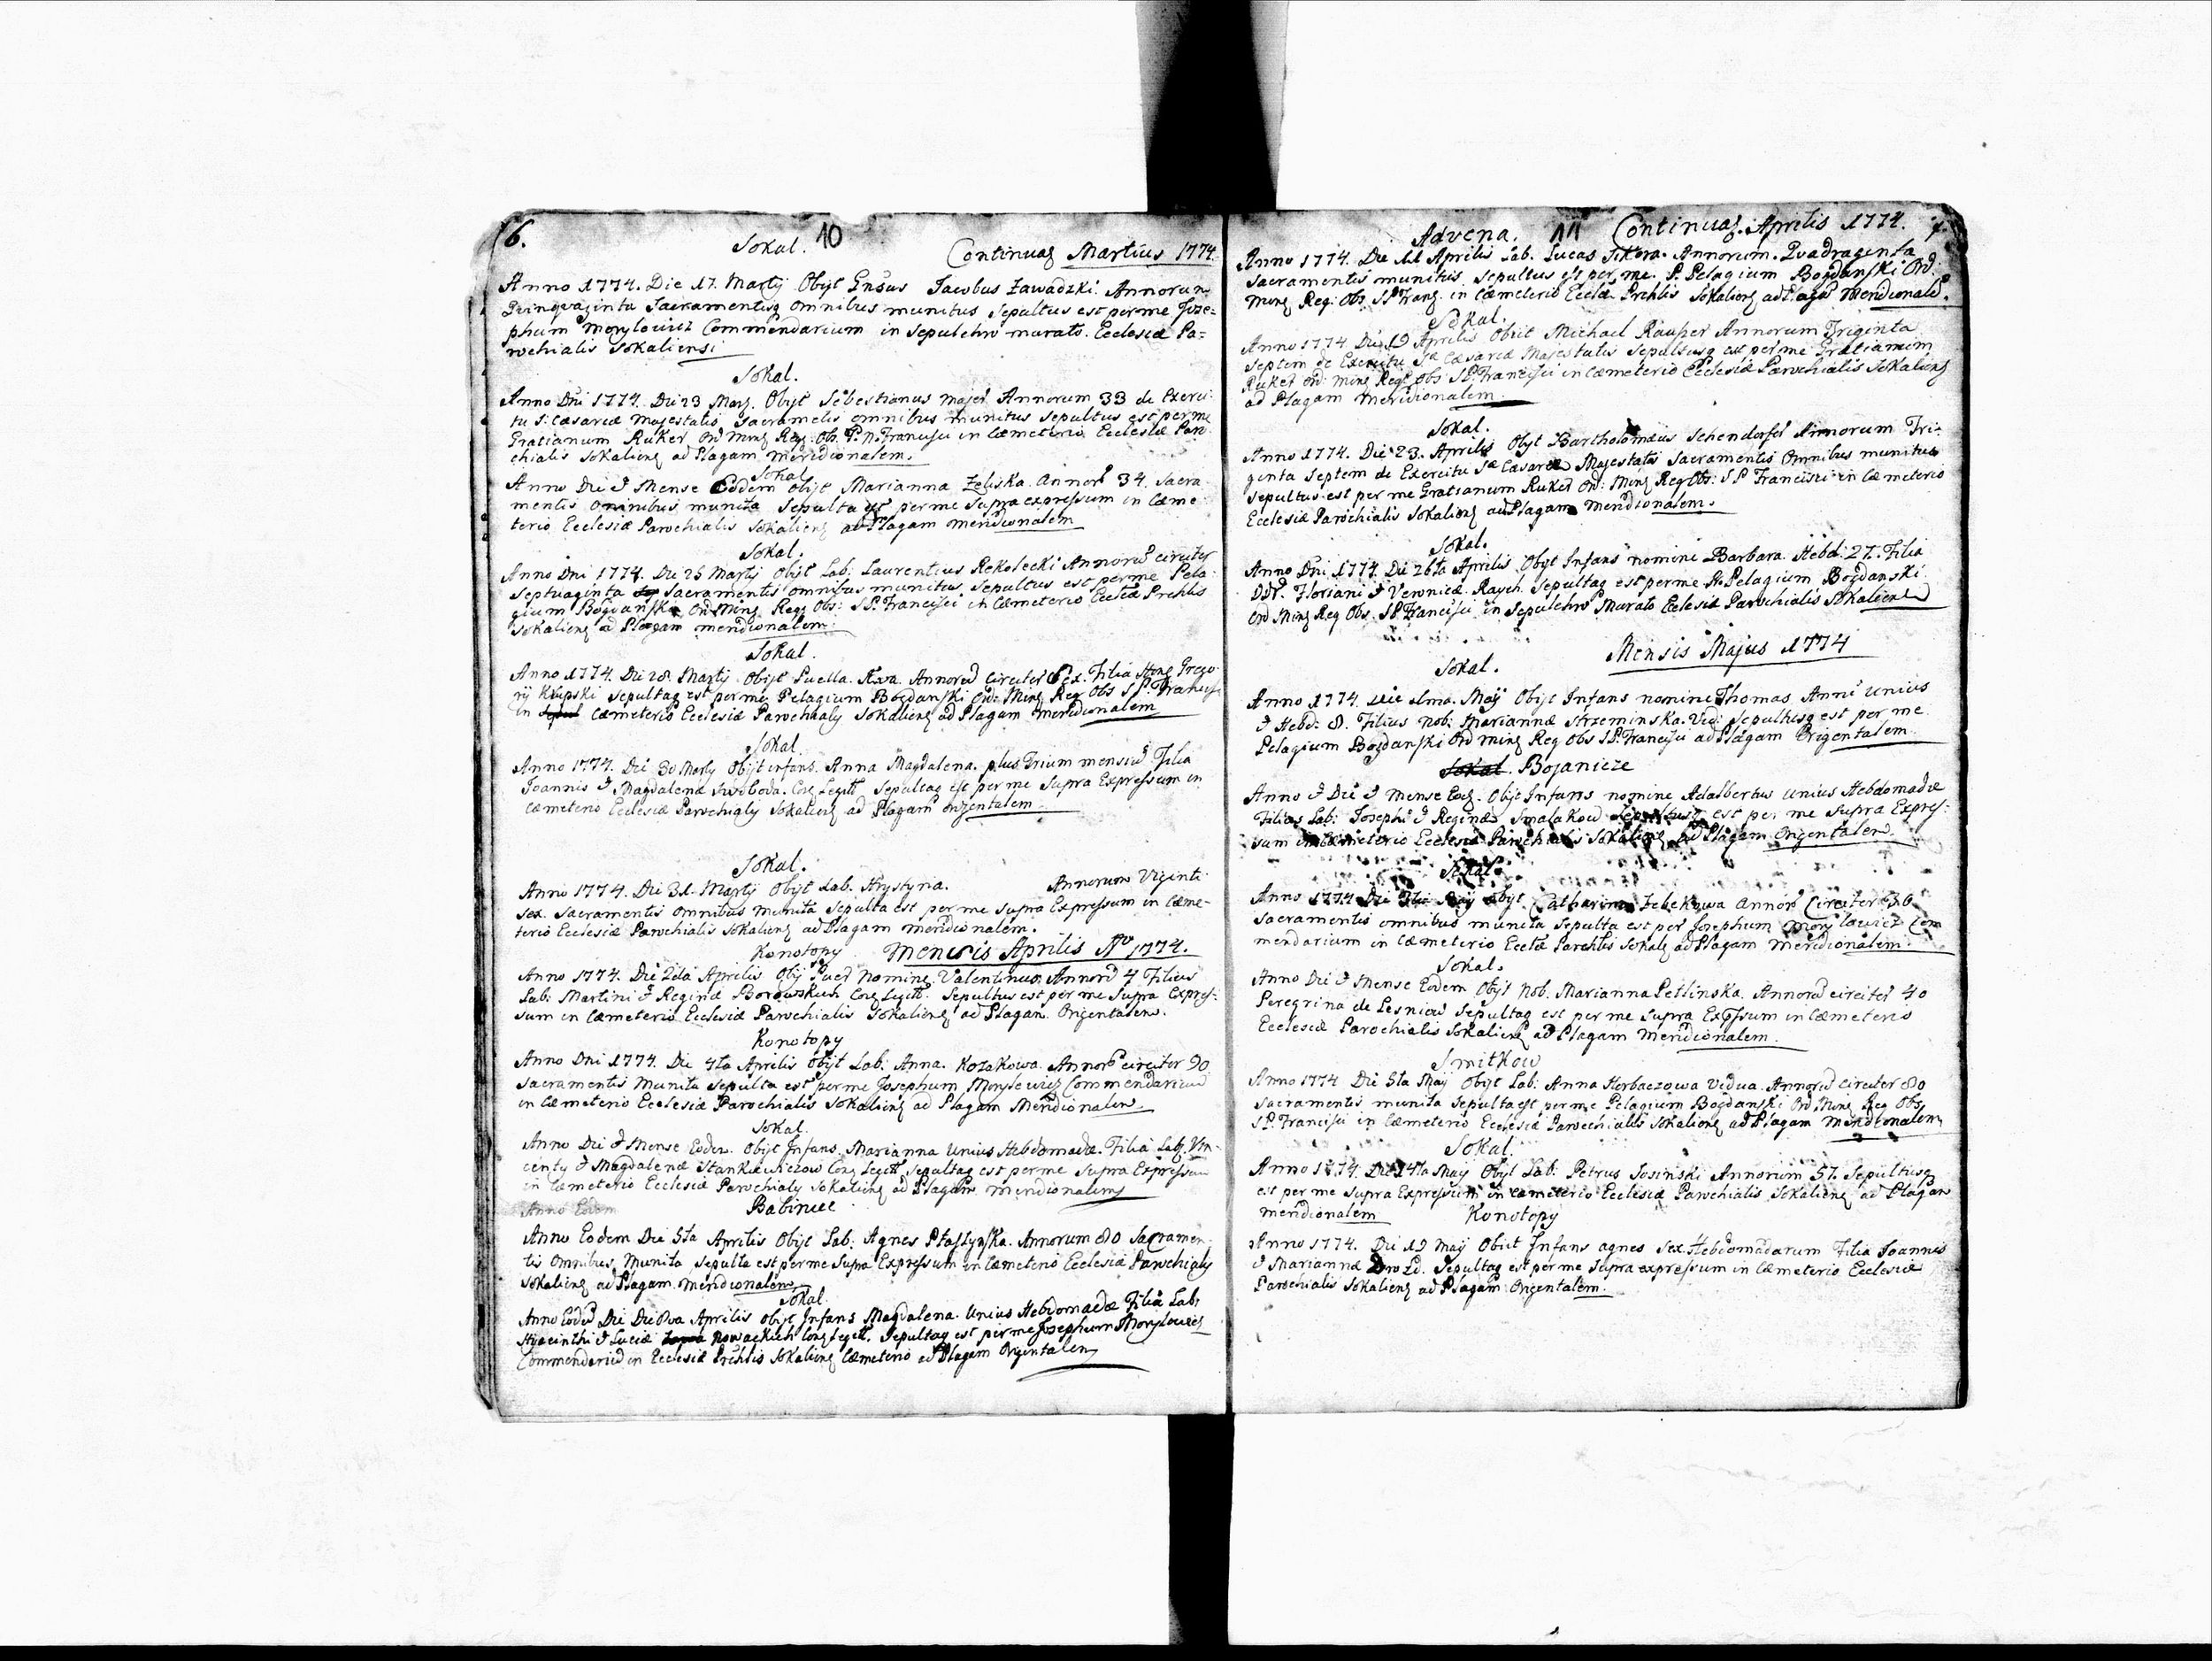 6.
Sokal. 10
Continuat Martius 1774.
Anno 1774. Die 17. Martÿ Obijt Gnsus Jacobus Zawadzki. Annorum
Quinquaginta Sacramentisq omnibus munitus Sepultus est per me Joze-
phum Morylowicz Commendarium in Sepulchro murato. Ecclesiæ Pa=
rochialis Sokaliensi
Sokal.
Anno Dni 1774. Die 23 Marz. Obijt Sebestianus Majer Annorum 33 de Exerci-
tu S: Cæsareæ Majestatis Sacramētis omnibus munitus Sepultus est per me
Gratianum Ruker Ord Minz Reg: Obs. P. N. Francisci in Cæmeterio Ecclesiæ Paro-
chialis Sokalienz ad Plagam meridionalem.
Sokal
Anno Die & Mense Eodem Obijt Marianna Zeliska. Annor 34. Sacra-
mentis omnibus munita Sepulta est per me Supra expressum in Cæme-
terio Ecclesiæ Parochialis Sokalienz ad Plagam meridionalem
Sokal.
Anno Dni 1774. Die 25 Martÿ Obijt Lab: Laurentius Rekolecki Annorū circiter
Septuaginta Sacramentis omnibus munitus Sepultus est per me Pela-
gium Bogdanski Ord Minz Reg Obs: SP. Francisci in Cæmeterio Eccłiæ Prchlis
Sokalienz ad Plagam meridionalem.
Sokal.
Anno 1774. Die 28. Martÿ Obijt Puella. Annorū circiter Sex. Filia Honz Grego-
rÿ Krupski Sepultaq est per me Pelagium Bogdanski Ord: Minz Reg Obs SP. Francisci
in Cæmeterio Ecclesiæ Parochialy Sokalienz ad Plagam meridionalem
Sokal.
Anno 1774. Die 30 Marty Obijt infans. Anna Magdalena. plus Trium mensiū Filia
Joannis & Magdalena Swoboda. Conz Legitt Sepultaq est per me Supra Expressum in
Cæmeterio Ecclesiæ Parochialy Sokalienz ad Plagam Orientalem
Sokal.
Anno 1774. Die 31. Martÿ Obijt Lab. Krystyna. Annorum Viginti
Sex. Sacramentis omnibus munita Sepulta est per me Supra Expressum in Cæme-
terio Ecclesiæ Parochialis Sokalienz ad Plagam meridionalem.
Konotopy Mensis Aprilis Ao 1774.
Anno 1774. Die 2da Aprilis Obÿ Puer Nomine Valentinus. Annorū 4 Filius
Lab: Martini & Reginæ Borowskich Conz Legitt. Sepultus est per me Supra Expres-
sum in Cæmeterio Ecclesiæ Parochialis Sokalienz ad Plagam Orientalem.
Konotopy
Anno Dni 1774. Die 4ta Aprilis Obijt Lab: Anna. Kozakowa. Annorū circiter 90
Sacramentis munita Sepulta est per me Josephum Morylewicz Commendarium
in Cæmeterio Ecclesiæ Parochialis Sokalienz ad Plagam Meridionalem.
Sokal.
Anno Die & Mense Eodem. Obijt Infans Marianna Unius Hebdomadæ. Filia Lab. Vin-
centy & Magdalenæ Stankiewiczow Conz Legitt Sepultaq est per me Supra Expressum
in Cæmeterio Ecclesiæ Parochialy Sokalienz ad Plagam meridionalem
Anno Eodem Babiniec
Anno Eodem Die 5ta Aprilis Obijt Lab: Agnes Ptaszynska. Annorum 80 Sacramen-
tis Omnibus Munita Sepulta est per me Supra Expressum in Cæmeterio Ecclesiæ Parochialy
Sokalienz ad Plagam. meridionalem
Sokal
Anno Eodē Die Die 8va Aprilis Obijt Infans Magdalena. Unius Hebdomadæ Filia Lab:
Hyacinthi & Luciæ Nowackich Conz Legitt. Sepultaq est per me Josephum Morylowicz
Commendariū in Ecclesiæ Prchlis Sokalienz Cæmeterio ad Plagam Orientalem
Advena. 11 Continuat. Aprilis 1774. 7.
Anno 1774. Die 11 Aprilis Lab. Lucas Sikora. Annorum. Quadraginta
Sacramentis munitus Sepultus est per me. P. Pelagium Bogdanski Ord:
Minz Reg: Obs. SP Franz. in Cæmeterio Eccłiæ Prchlis Sokalienz ad Plagā Meridionalē.
Sokal.
Anno 1774 Die 19 Aprilis Obiit Michael Rauper Annorum Triginta
Septem de Exercitu Sæ Cæsareæ Majestatis Sepultusq est per me Gratianum
Ruker Ord: Minz Regł Obs SP. Francisci in Cæmeterio Ecclesiæ Parochialis Sokalienz
ad Plagam meridionalem.
Sokal.
Anno 1774. Die 23. Aprilis Obÿt Bartholomæus Schendorfer Annorum Tri-
ginta Septem de Exercitu Sæ Cæsareæ Majestatis Sacramentis Omnibus munitus
Sepultus est per me Gratianum Ruker Ord: Minz Reg Obs: SP Francisci in Cæmeterio
Ecclesiæ Parochialis Sokalienz ad Plagam meridionalem.
Sokal.
Anno Dni 1774. Die 26ta Aprilis Obÿt Infans nomine Barbara. Hebd: 27. Filia
DD. Floriani & Veronicæ Raych. Sepultaq est per me Pelagium Bogdanski
Ord Minz Reg Obs. SP. Francisci in Sepulchro Murato Ecclesiæ Parochialis Sokaliens
Sokal. Mensis Majus 1774
Anno 1774. Die 1ma. Maÿ Obijt Infans nomine Thomas Anni unius
& Hebd: 8. Filius Nob: Mariannæ Strzeminska. Vid: Sepultusq est per me
Pelagium Bogdanski Ord Minz Reg Obs SP. Francisci ad Plagam Orientalem.
Sokal. Bojanicze
Anno & Die & Mense Eoz. Obijt Infans nomine Adalbertus Unius Hebdomadæ
Filius Lab: Josephi & Reginæ Smalakow Sepultusq est per me Supra Expres-
sum in Cæmeterio Ecclesiæ Parochialis Sokalienz ad Plagam Orientalem.
Sokal.
Anno 1774 Die Maÿ Obijt Catharina Zebekowa Annor Circiter 30
Sacramentis omnibus munita Sepulta est per Josephum Morylowicz Com
mendarium in Cæmeterio Eccłiæ Parchlis Sokalz ad Plagam Meridionalem.
Sokal.
Anno Die & Mense Eodem Obijt Nob. Marianna Petlinska. Annorū circiter 40
Peregrina de Lesniow Sepultaq est per me Supra Expssum in Cæmeterio
Ecclesiæ Parochialis Sokalienz ad Plagam Meridionalem.
Smitkow
Anno 1774 Die 5ta Maÿ Obijt Lab: Anna Horbaczowa Vidua. Annorū Circiter 80
Sacramentis munita Sepulta est per me Pelagium Bogdanski Ord Minz Reg Obs.
SP. Francisci in Cæmeterio Ecclesiæ Parochialis Sokalienz ad Plagam Meridionalem
Sokal.
Anno 1774. Die 14ta Maÿ Obijt Lab: Petrus Sosinski Annorum 57. Sepultusq
est per me Supra Expressum in Cæmeterio Ecclesiæ Parochialis Sokalienz ad Plagam
meridionalem Konotopy
Anno 1774. Die 19 Maÿ Obiit Infans Agnes Sex Hebdomadarum Filia Joannis
& Mariannæ Sepultaq est per me Supra expressum in Cæmeterio Ecclesiæ
Parochialis Sokalienz ad Plagam Orientalem.